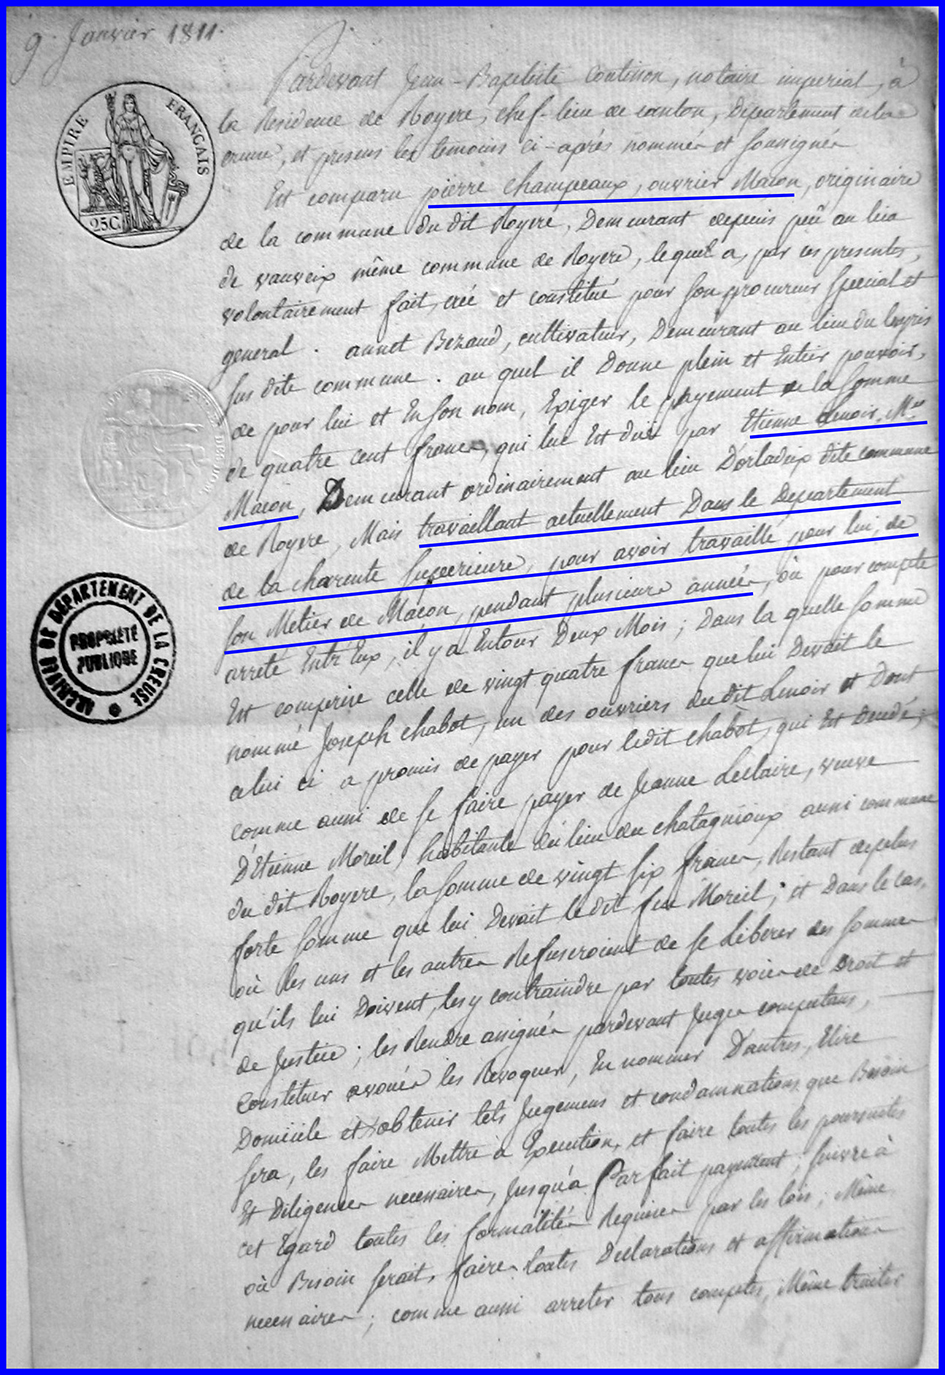 9. Janvier 1811.
EMPIRE FRANÇAIS
25C
ARCHIVES DU DÉPARTEMENT DE LA CREUSE
PROPRIÉTÉ
PUBLIQUE
Pardevant Jean-Baptiste Coutisson, notaire imperial, à
la Residence de Royere, chef-lieu de canton, Departement de la
creuse, et presens les temoins ci-après nommés et soussignés
Est comparu pierre champeaux, ouvrier Macon, originaire
de la commune du dit Royere, Demeurant depuis peu au lieu
de vauveix même commune de Royere, lequel a, par ces presentes,
volontairement fait, créé et constitué pour son procureur special et
general. annet Bezaud, cultivateur, Demeurant au lieu du
sus dite commune. au quel il Donne plein et Entier pouvoir,
de pour lui et En son nom, Exiger le payement de la somme
de quatre cent francs, qui lui Est due par Etienne Lenoir, Me
Macon, Demeurant ordinairement au lieu D'orladeix dite commune
de Royere, Mais travaillant actuellement Dans le Departement
de la charente Inferieure, pour avoir travaillé pour lui, de
son Métier de Macon, pendant plusieurs années, ou pour compte
arreté Entr'Eux, il y a Entour Deux Mois; Dans la quelle somme
Est comprise celle de vingt quatre francs que lui Devait le
nommé Joseph chabot, un des ouvriers du dit Lenoir et Dont
celui ci a promis de payer pour ledit chabot, qui Est decédé;
comme aussi de se faire payer de Jeanne Leclaire, veuve
D'Etienne Moreil, habitante du lieu du chatagnioux aussi commune
du dit Royere, la somme de vingt six francs, Restant de plus
forte somme que lui Devait le dit feu Moreil; et Dans le cas,
où les uns et les autres Refuseroient de se Liberer des sommes
qu'ils lui Doivent, les y contraindre par toutes voies de Droit et
de Justice; les Rendre assignés pardevant Juges competans,
constituer avoués les Revoquer, En nommer D'autres, Elire
Domicile et obtenir tels Jugemens et condamnations que Besoin
sera, les faire Mettre à Execution, et faire toutes les poursuites
Et Diligences necessaires, Jusqu'à Parfait payement; suivre à
cet Egard toutes les formalités Requises par les lois; Même
où Besoin serait, faire toutes Declarations et affirmations
necessaires; comme aussi arreter tous comptes, Même traiter